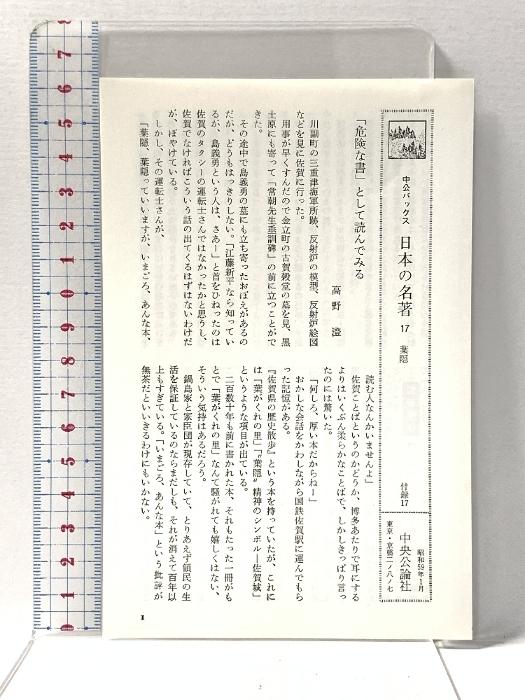 中公バックス 日本の名著 17 葉隠
付録17
中央公論社
昭和59年1月
東京・京橋二ノ八ノ七
「危険な書」として読んでみる
高野 澄
川副町の三重津海軍所跡、反射炉の模型、反射炉絵図
などを見に佐賀に行った。
用事が早くすんだので金立町の古賀穀堂の墓を見、黒
土原にも寄って「常朝先生垂訓碑」の前に立つことがで
きた。
その途中で島義勇の墓にも立ち寄ったおぼえがあるの
だが、どうもはっきりしない。「江藤新平なら知ってい
るが、島義勇という人は、さあー」と首をひねったのは
佐賀のタクシーの運転士さんではなかったかと思うし、
佐賀でなければこういう話の出てくるはずはないわけだ
が、ぼやけている。
しかし、その運転士さんが、
「葉隠、葉隠っていいますが、いまごろ、あんな本、
読む人なんかいませんよ」
佐賀ことばというのかどうか、博多あたりで耳にする
よりはいくぶん柔らかなことばで、しかしきっぱり言っ
たのには驚いた。
「何しろ、厚い本だからねー」
おかしな会話をかわしながら国鉄佐賀駅に運んでもら
った記憶がある。
『佐賀県の歴史散歩』という本を持っていたが、これに
は「葉がくれの里」「〝葉隠〟精神のシンボル―佐賀城」
というような項目が出ている。
二百数十年も前に書かれた本、それもたった一冊がも
とで「葉がくれの里」なんて騒がれても嬉しくはない、
そういう気持はあるだろう。
鍋島家と家臣団が現存していて、とりあえず領民の生
活を保証しているのならまだしも、それが消えて百年以
上もすぎている。「いまごろ、あんな本」という批評が
無茶だといいきるわけにもいかない。
1
7
6
5
4
3
2
1
0
9
8
7
6
5
4
3
2
1
0